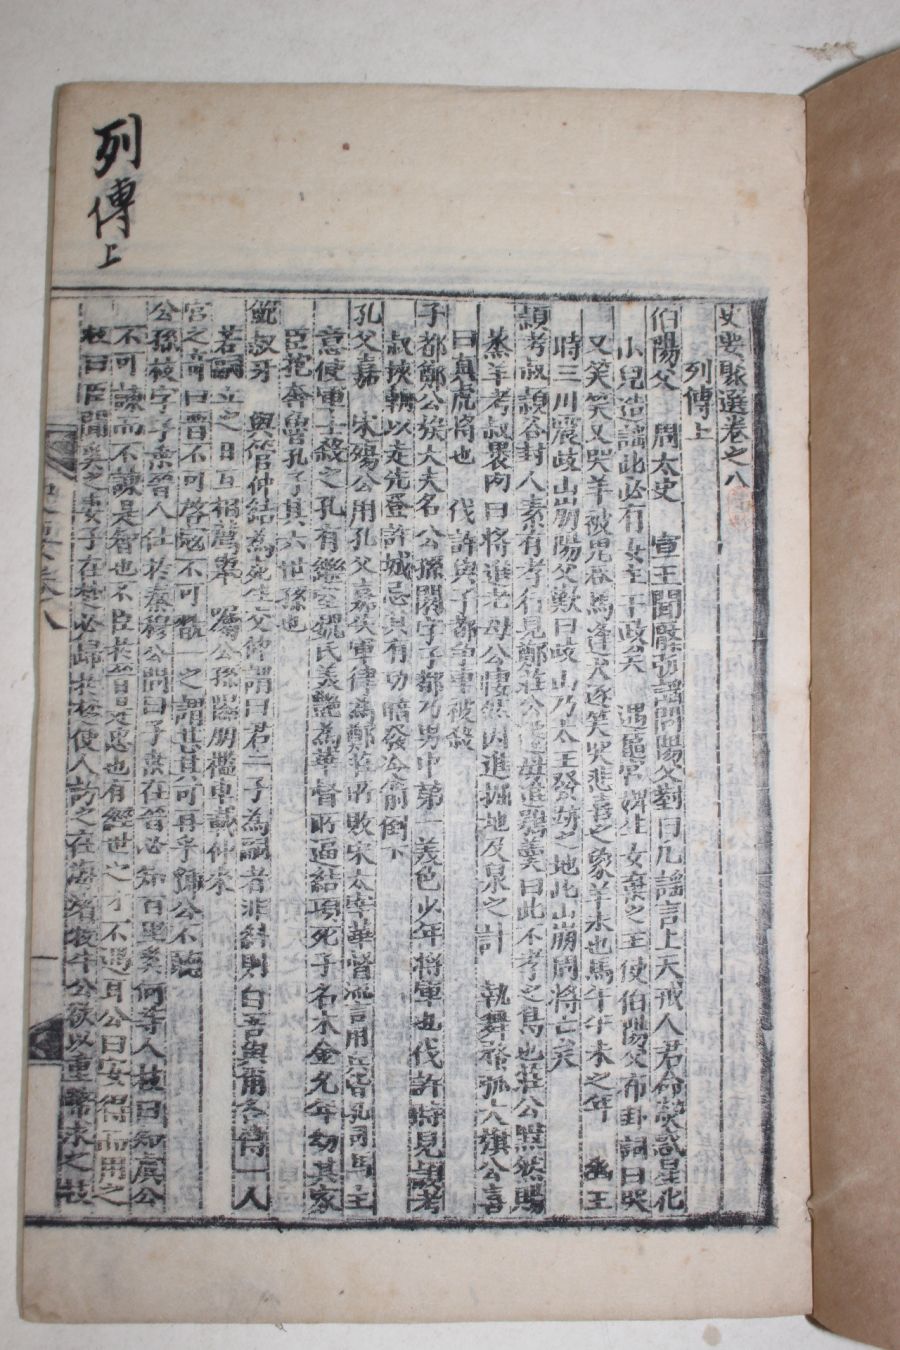 列傳上
史要聚選卷之八
列傳上
伯陽父 周太史 宣王聞檿弧謠問陽父對曰凡謠言上天戒人君命熒惑星化
小兒造謠此必有女主干政矣 遇 宮 生女棄之王使伯陽父布卦詞曰哭
又笑笑又哭羊被鬼吞馬逢犬逐笑哭悲喜之象羊未也馬午午未之年 幽王
時三川震歧山崩陽父歎曰歧山乃太王發 之地此山崩周將亡矣
穎考叔穎谷封人素有孝行見鄭莊公 母進鴞羹曰此不孝之鳥也莊公默然賜
蒸羊考叔裹肉曰將進老母公悽然因進掘地及泉之計 執舞螯弧大旗公喜
曰眞虎將也 伐許與子都爭車被殺
子都鄭公族大夫名公孫閼字子都乃男中第一美色少年將軍也伐許時見穎考
叔挾輈以走先登許城忌其有功暗發冷箭倒下
孔父嘉 宋殤公用孔父嘉失軍律爲鄭 所敗宋太宰華督流言用兵皆孔司馬主
意使軍士殺之孔有繼室魏氏美艶爲華督所逼結項死子名木金父年幼其家
臣抱奔魯孔子其六世孫也
鮑叔牙 與管仲結爲死生父仲謂曰君二子爲嗣者非糾則白吾與爾各傅一人
若嗣立之日互相薦擧 囑公孫隰朋檻車載仲來
宮之奇曰晋不可啓寇不可翫一之謂甚其可再乎 公不聽
公孫枝字子桑晉人仕於秦穆公問曰子桑在晉必知百里奚何等人枝曰知虞公
不可諫而不諫是智也不臣於晋 忠也有經世之才不遇耳公曰安得而用之
枝曰臣聞奚之妻子在楚必歸於楚使人訪之在海濱牧牛公欲以重幣求之枝
史要 卷八
一